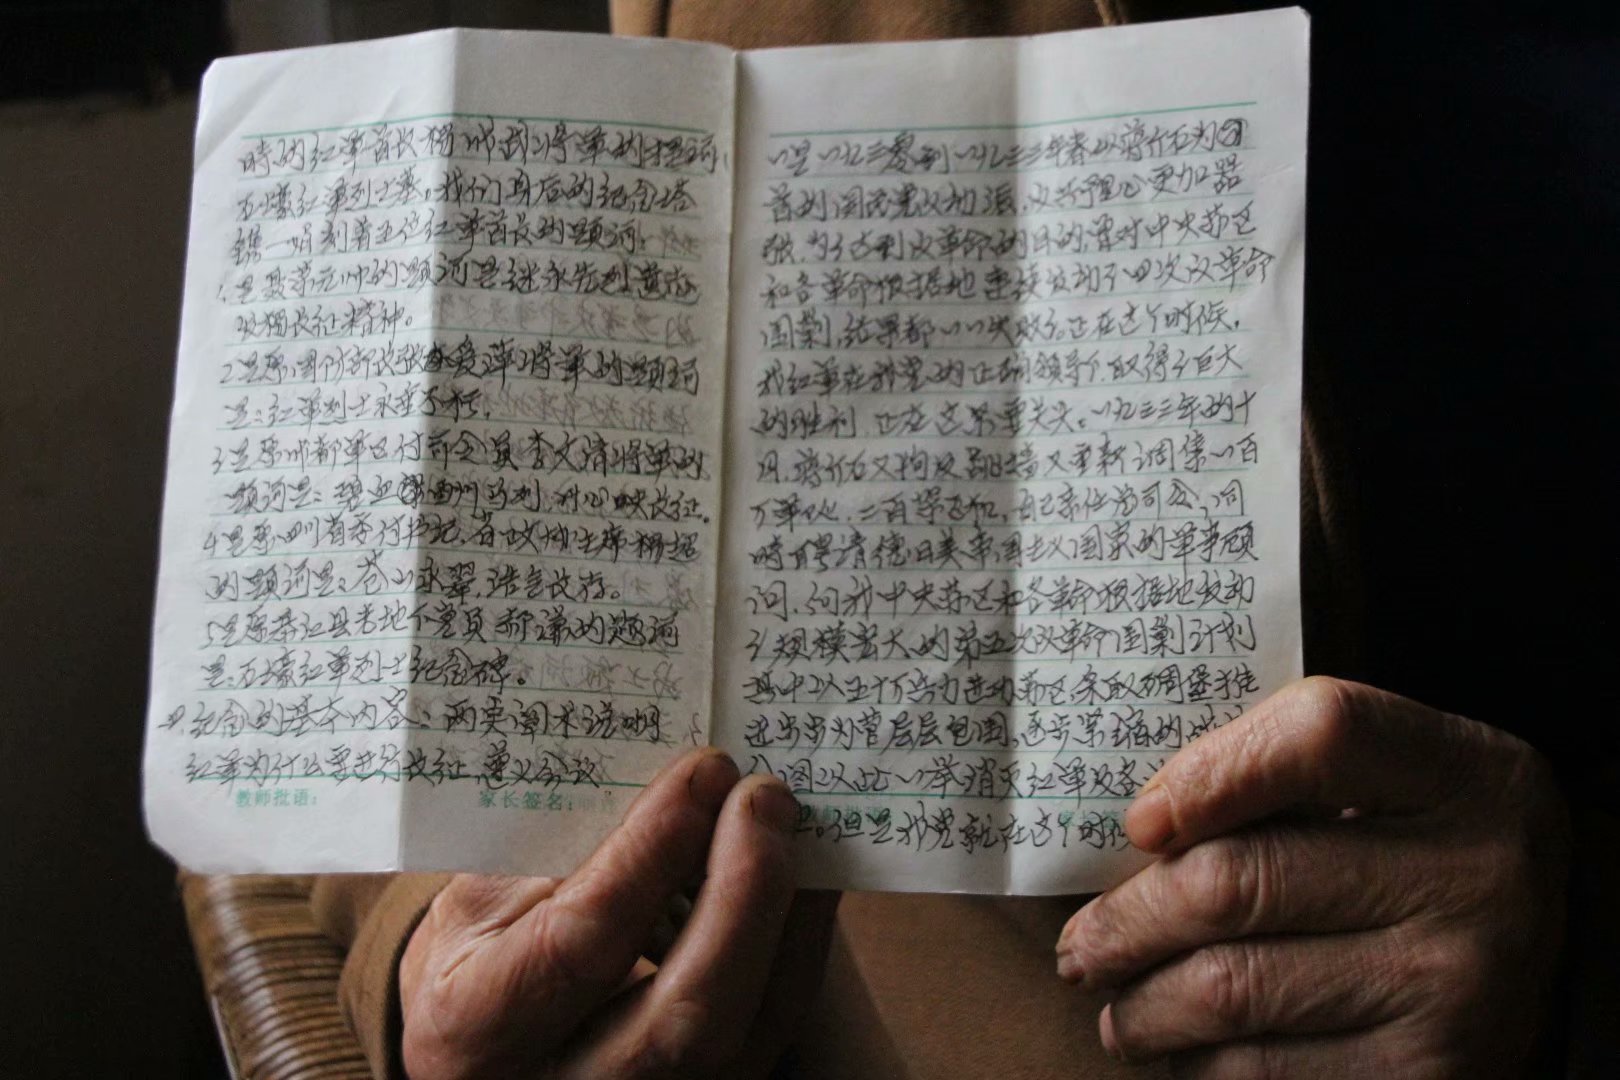 時的红军首长杨成武将军的提词:
石壕红军列士墓。我们身后的纪念塔
一娟刻着五位红军首长的题词:
1.是聂荣元帅的题词是继永先列遗志
发杨长征精神。
2是原国防部长张爱萍将军的题词
是:红军列士永垂不朽。
3是原成都军区付司令员李文清将军的
题词是:碧血,丹心映长征。
4是原四川省委付书记,省政协主席杨超
的题词是:苍山永翠,浩气长存。
5是原綦江县老地下党员谦的题词
是:石壕红军列士纪念碑。
四.纪念的基本内容:两卖阐术说明
红军为什么要进行长征,遵义会议
教师批语: 家长签名:
一是一九三零到一九三三年春以蒋介石为
首的国民党反动派,反共野心更加器
张,为了达到反革命的目的,曾对中央苏区
和各革命根据地连续发动了四次反革命
围剿,结果都一一失败了。正在这个时候,
我红军在我党的正确领导下,取得了巨大
的胜利。正在这紧要关头。一九三三年的十
月,蒋介石又狗急跳墙又重新调集一百
万军队,二百架飞机,自己亲任总司令,同
時聘请德日美帝国主义国家的军事顾
问,向我中央苏区和各革命根据地发动
了规模宏大的第五次反革命围剿计划
其中以五十万兵力进攻苏区,采取碉堡推
进步步为营层层包围,逐步紧缩的战
以此一举消灭红军及各
但是我党就在这个时